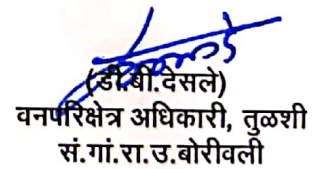 (डी.बी.देसले)
वनपरिक्षेत्र अधिकारी, तुळशी
सं.गां.रा.उ.बोरीवली